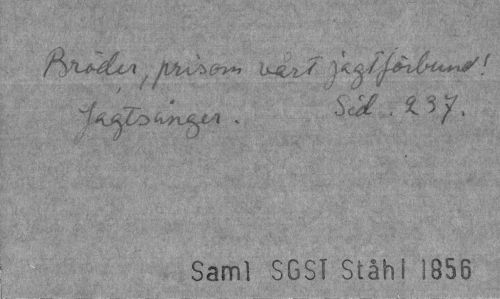 Bröder, prisom vårt jagtförbund!
Jagtsånger. Sid. 237.
Saml SGST Ståhl 1856